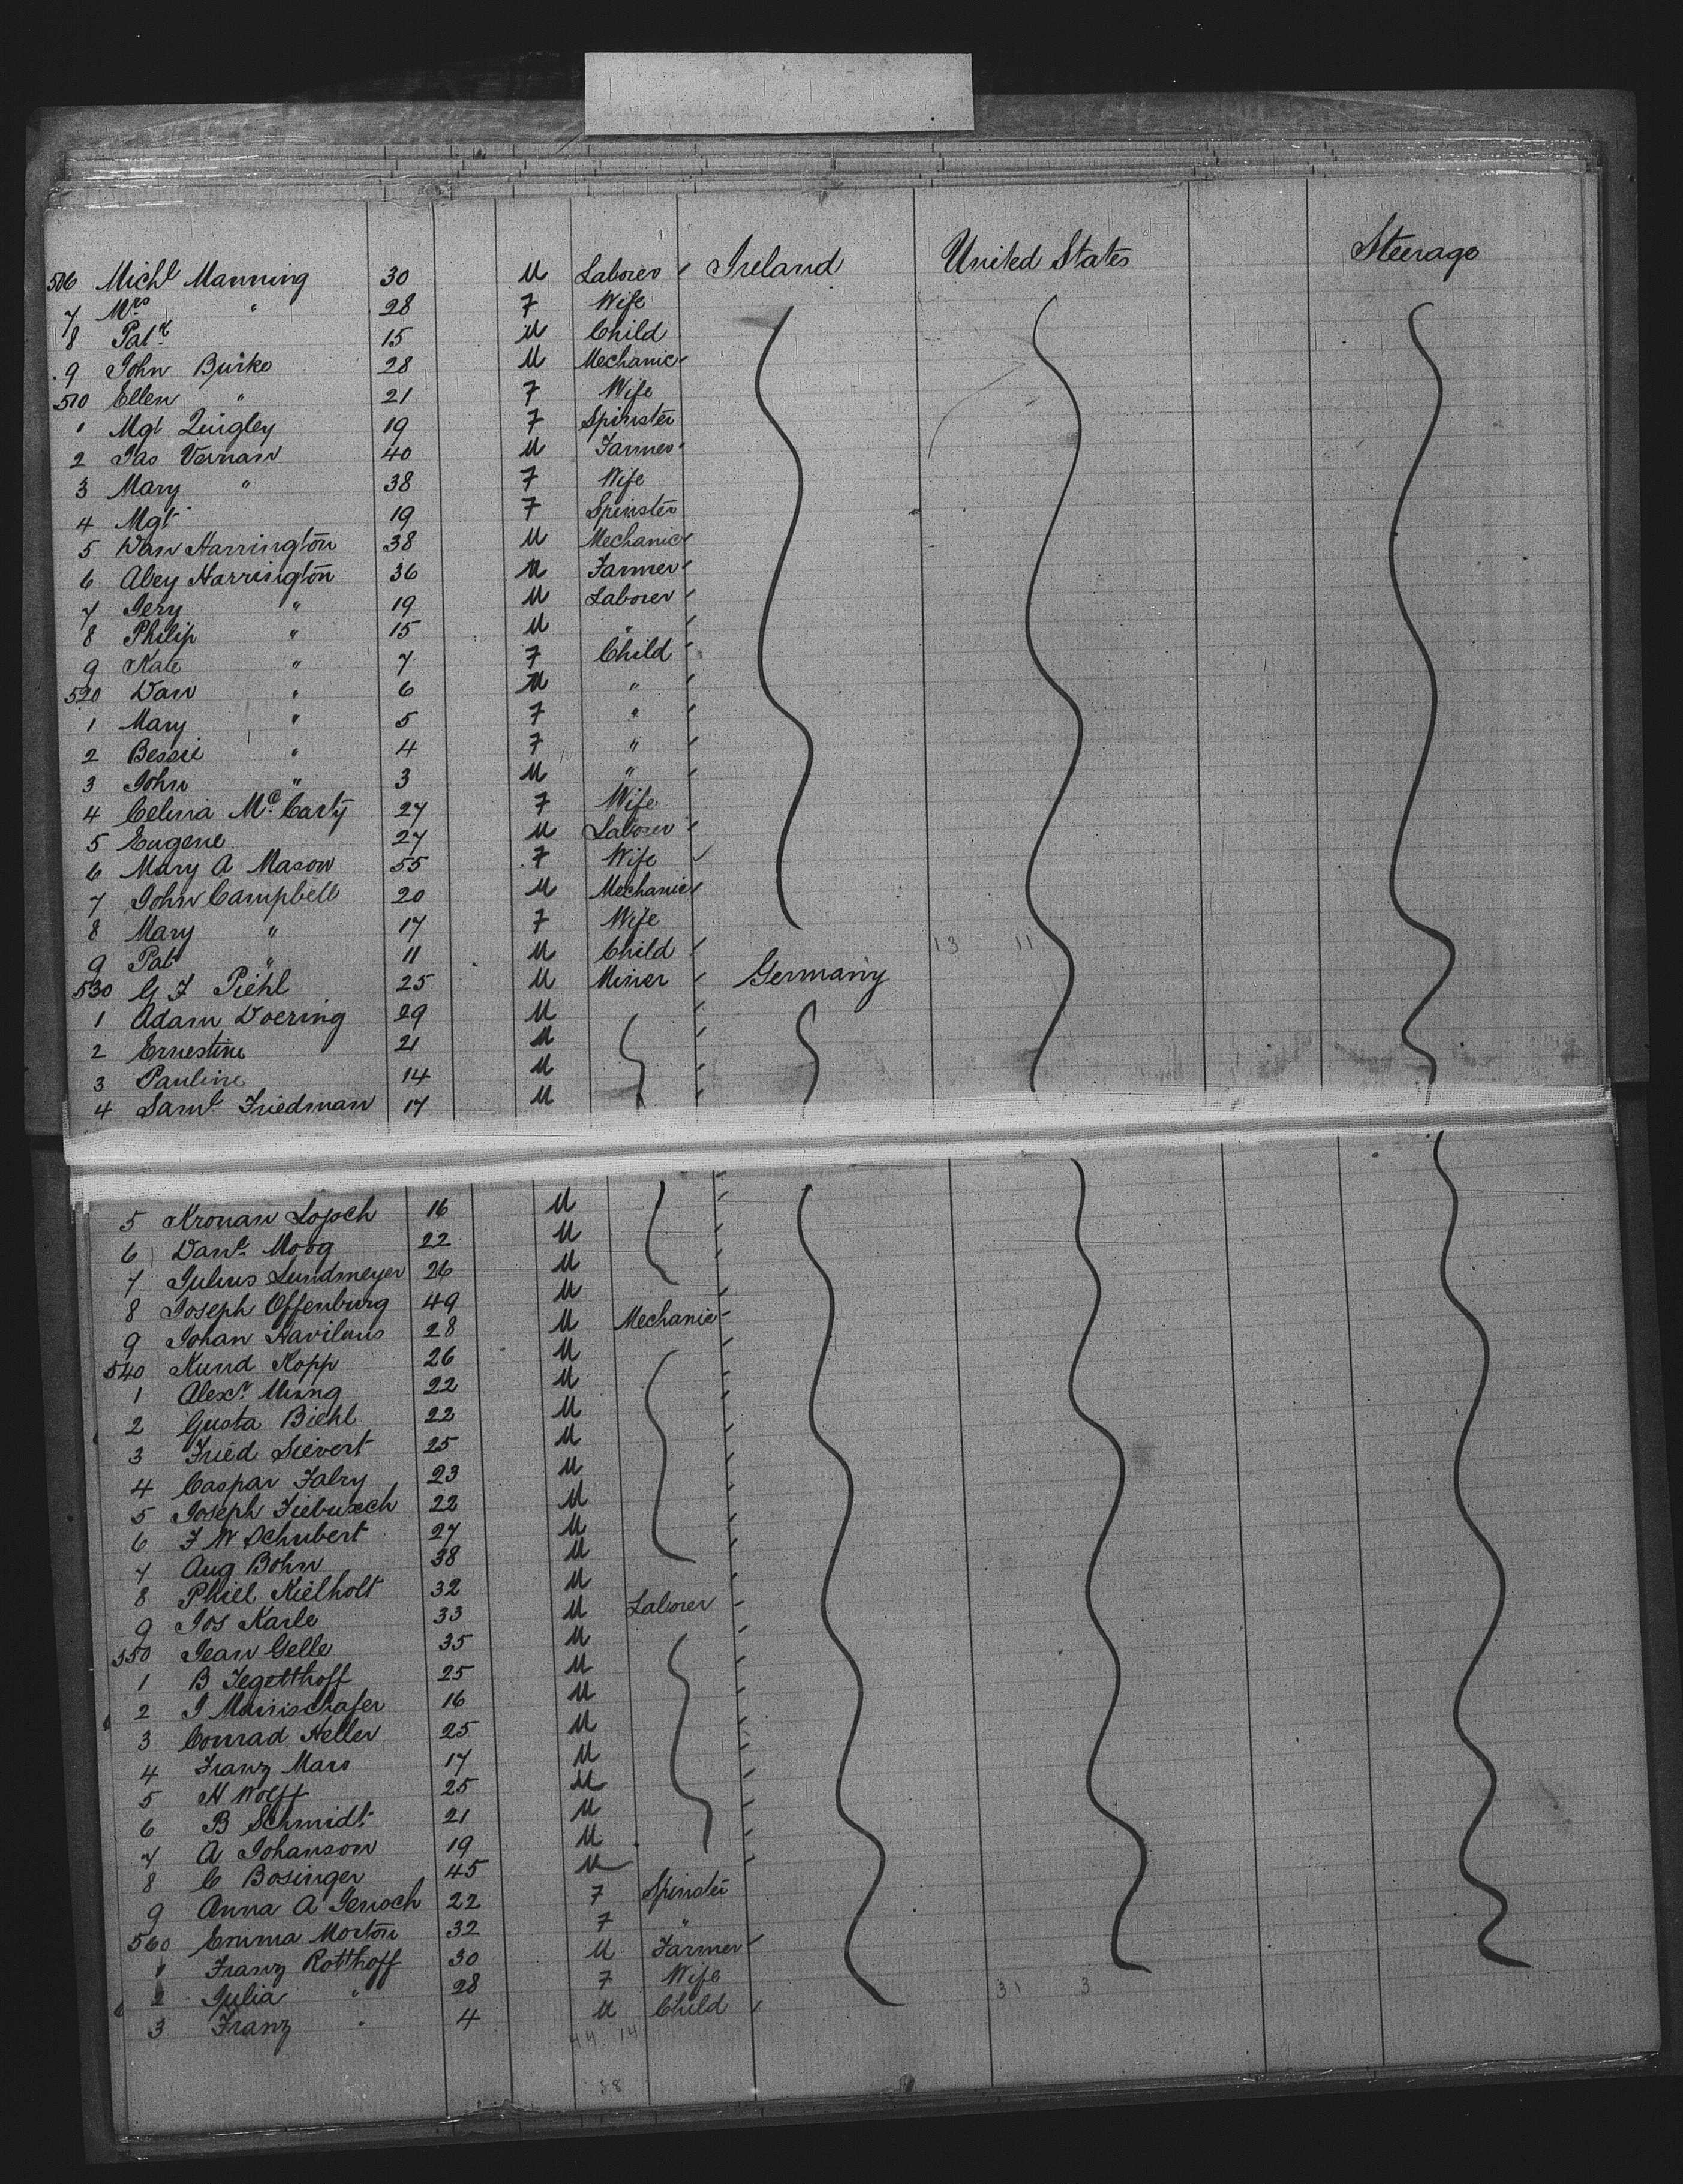 506 Michl Manning 30 M Laborer Ireland United States Steerage
7 Mrs " 28 F Wife
8 Patk 15 M Child
9 John Burke 28 M Mechanic
510 Ellen " 21 F Wife
1 Mgt Quigley 19 F Spinster
2 Jas Vernan 40 M Farmer
3 Mary " 38 F Wife
4 Mgt 19 F Spinster
5 Dan Harrington 38 M Mechanic
6 Abey Harrington 36 M Farmer
7 Jery " 19 M Laborer
8 Philip " 15 M "
9 Kate " 7 F Child
520 Dan " 6 M "
1 Mary " 5 F "
2 Bessie " 4 F "
3 John " 3 M "
4 Celina Mc Carty 27 F Wife
5 Eugene 27 M Laborer
6 Mary A Mason 55 F Wife
7 John Campbell 20 M Mechanic
8 Mary " 17 F Wife
9 Pat " 11 M Child 13 11
530 G F Piehl 25 M Miner Germany
1 Adam Doering 29 M
2 Ernestine 21 M
3 Pauline 14 M
4 Saml Friedman 17 M
5 Kronan 16 M
6 Danl Moog 22 M
7 Julius Lundmeyer 26 M
8 Joseph Offenburg 49 M
9 Johan 28 M Mechanic
540 Kund Kopp 26 M
1 Alexr 22 M
2 Gusta Biehl 22 M
3 Fried Sievert 25 M
4 Caspar Fabry 23 M
5 Joseph 22 M
6 F W Schubert 27 M
7 Aug Bohn 38 M
8 Phiel Kielholt 32 M
9 Jos Karle 33 M Laborer
550 Jean Gelle 35 M
1 B Tegetthoff 25 M
2 J 16 M
3 Conrad Heller 25 M
4 Franz Mars 17 M
5 H Wolff 25 M
6 B Schmidt 21 M
7 A Johanson 19 M
8 C Bosinger 45 M
9 Anna A Jenoch 22 F Spinster
560 Emma Morton 32 F "
1 Franz Rotthoff 30 M Farmer
2 Julia " 28 F Wife 31 3
3 Franz " 4 M Child
44 14
58